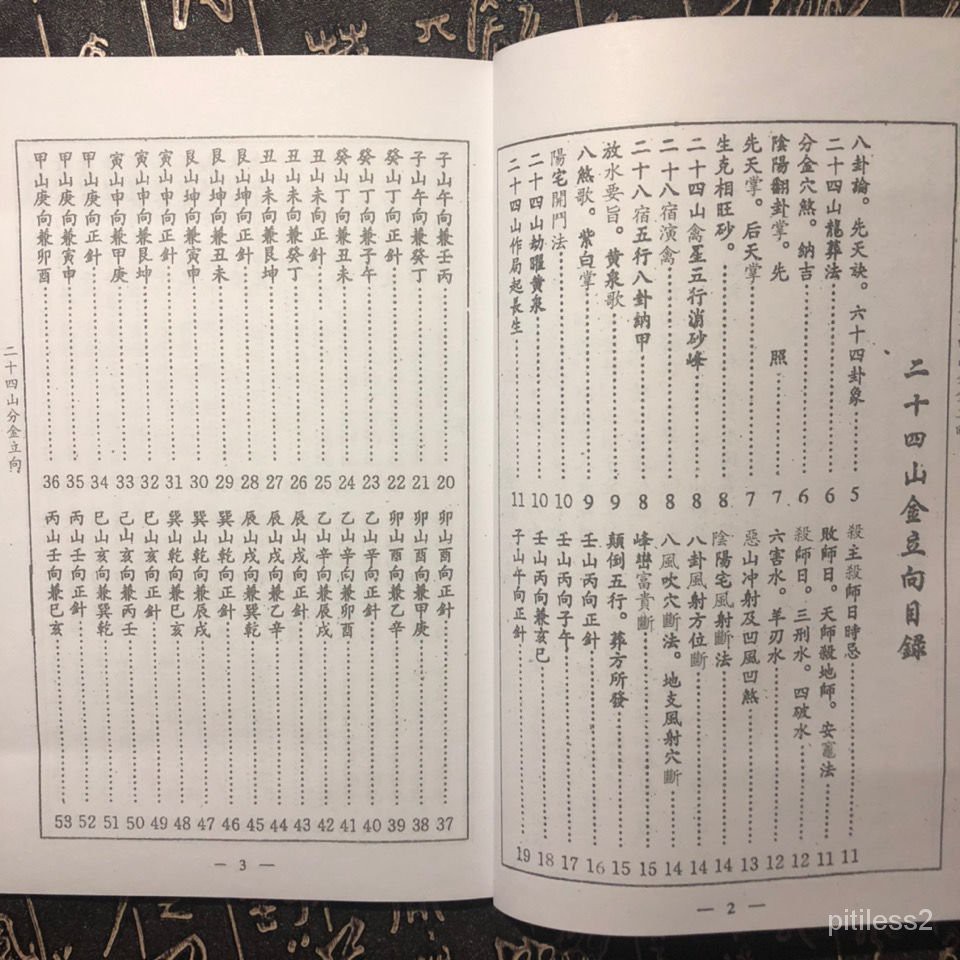 二十四山金立向目錄
八卦論。先天訣。六十四卦象 5
二十四山龍葬法 6
分金穴煞。納吉 6
陰陽翻卦掌。先 照 7
先天掌。后天掌 7
生克相旺砂。 8
二十四山禽星五行消砂峰 8
二十八宿演禽 8
二十八宿五行八卦納甲 8
放水要旨。黃泉歌 9
八煞歌。紫白掌 9
陽宅開門法 10
二十四山劫曜黃泉 10
二十四山作局起長生 11
殺主殺師日時忌 11
敗師日。天師殺地師。安竈法 11
殺師日。三刑水。四破水 12
六害水。羊刃水 12
惡山冲射及凹風凹煞 13
陰陽宅風射斷法 14
八卦風射方位斷 14
八風吹穴斷法。地支風射穴斷 14
峰巒富貴斷 15
顛倒五行。葬方所發 15
壬山丙向正針 16
壬山丙向子午 17
壬山丙向兼亥巳 18
子山午向正針 19
— 2 —
子山午向兼壬丙 20
子山午向兼癸丁 21
癸山丁向正針 22
癸山丁向兼子午 23
癸山丁向兼丑未 24
丑山未向正針 25
丑山未向兼癸丁 26
丑山未向兼艮坤 27
艮山坤向正針 28
艮山坤向兼丑未 29
艮山坤向兼寅申 30
寅山申向正針 31
寅山申向兼艮坤 32
寅山申向兼甲庚 33
甲山庚向正針 34
甲山庚向兼寅申 35
甲山庚向兼卯酉 36
卯山酉向正針 37
卯山酉向兼甲庚 38
卯山酉向兼乙辛 39
乙山辛向正針 40
乙山辛向兼卯酉 41
乙山辛向兼辰戌 42
辰山戌向正針 43
辰山戌向兼乙辛 44
辰山戌向兼巽乾 45
巽山乾向正針 46
巽山乾向兼辰戌 47
巽山乾向兼巳亥 48
巳山亥向正針 49
己山亥向兼丙壬 50
巳山亥向兼巽乾 51
丙山壬向正針 52
丙山壬向兼巳亥 53
二十四山分金立向
— 3 —
pitiless2